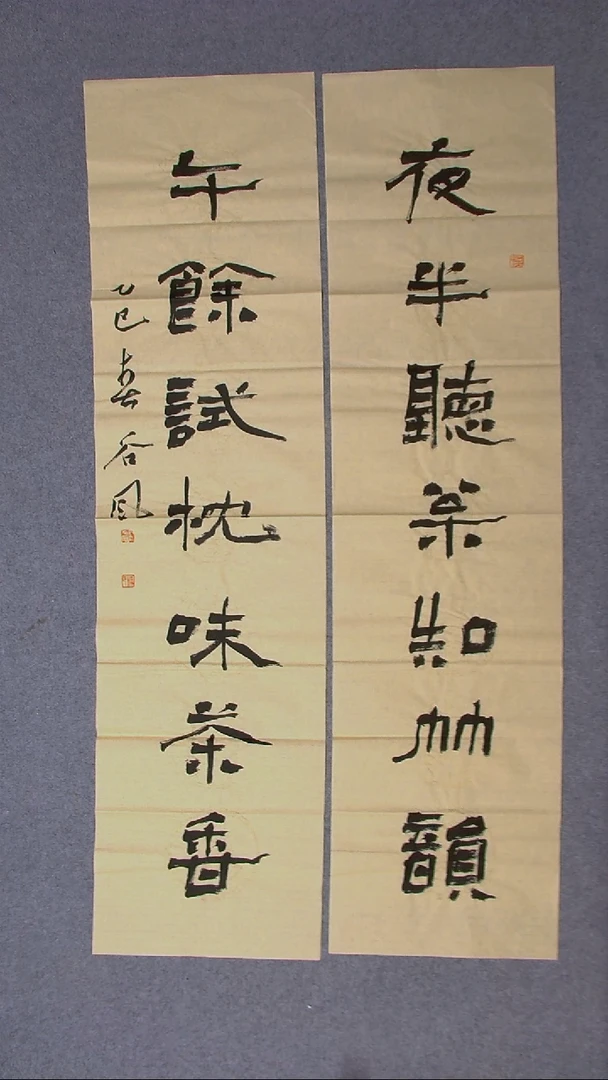 夜半聽知竹韻
午餘試枕味茶香
乙巳春谷风